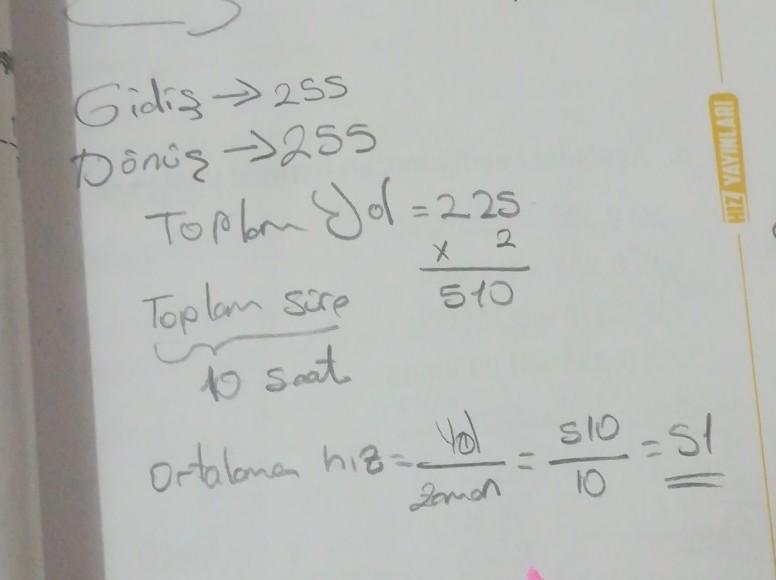 Gidiş → 255
Dönüş → 255
Toplam Yol = 225
x 2
510
Toplam süre
10 saat
Ortalaman hız = Yol / Zaman = 510 / 10 = 51
HIZ YAYINLARI